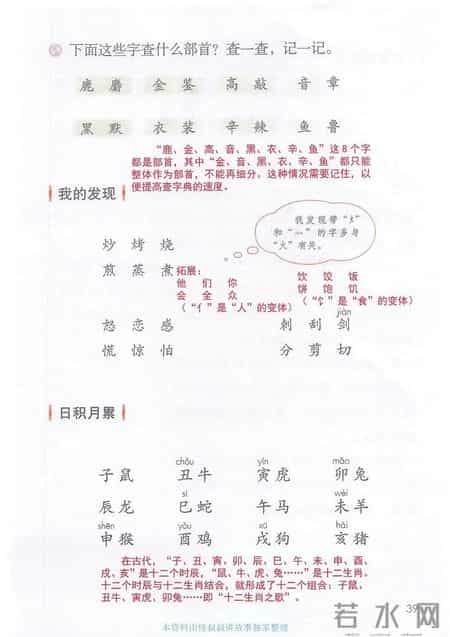 下面这些字查什么部首？查一查，记一记。
鹿 麝 金 鉴 高 敲 音 章
黑 默 衣 装 辛 辣 鱼 鲁
“鹿、金、高、音、黑、衣、辛、鱼”这8个字
都是部首，其中“金、音、黑、衣、辛、鱼”都只能
整体作为部首，不能再细分。这种情况需要记住，以
便提高查字典的速度。
我的发现
我发现带“火”
和“灬”的字多与
“火”有关。
炒 烤 烧
煎 蒸 煮
拓展：
他 们 你
会 全 众
（“亻”是“人”的变体）
饮 饺 饭
饼 饱 饥
（“饣”是“食”的变体）
jiàn
怒 恋 感 刺 刮 剑
慌 惊 怕 分 剪 切
日积月累
chǒu yín mǎo
子鼠 丑牛 寅虎 卯兔
sì wèi
辰龙 巳蛇 午马 未羊
shēn yǒu xū hài
申猴 酉鸡 戌狗 亥猪
在古代，“子、丑、寅、卯、辰、巳、午、未、申、酉、
戌、亥”是十二个时辰，“鼠、牛、虎、兔……”是十二生肖。
十二个时辰与十二生肖结合，就形成了十二个组合：子鼠、
丑牛、寅虎、卯兔……即“十二生肖之歌”。
39
本资料由怪叔叔讲故事独家整理
若水网